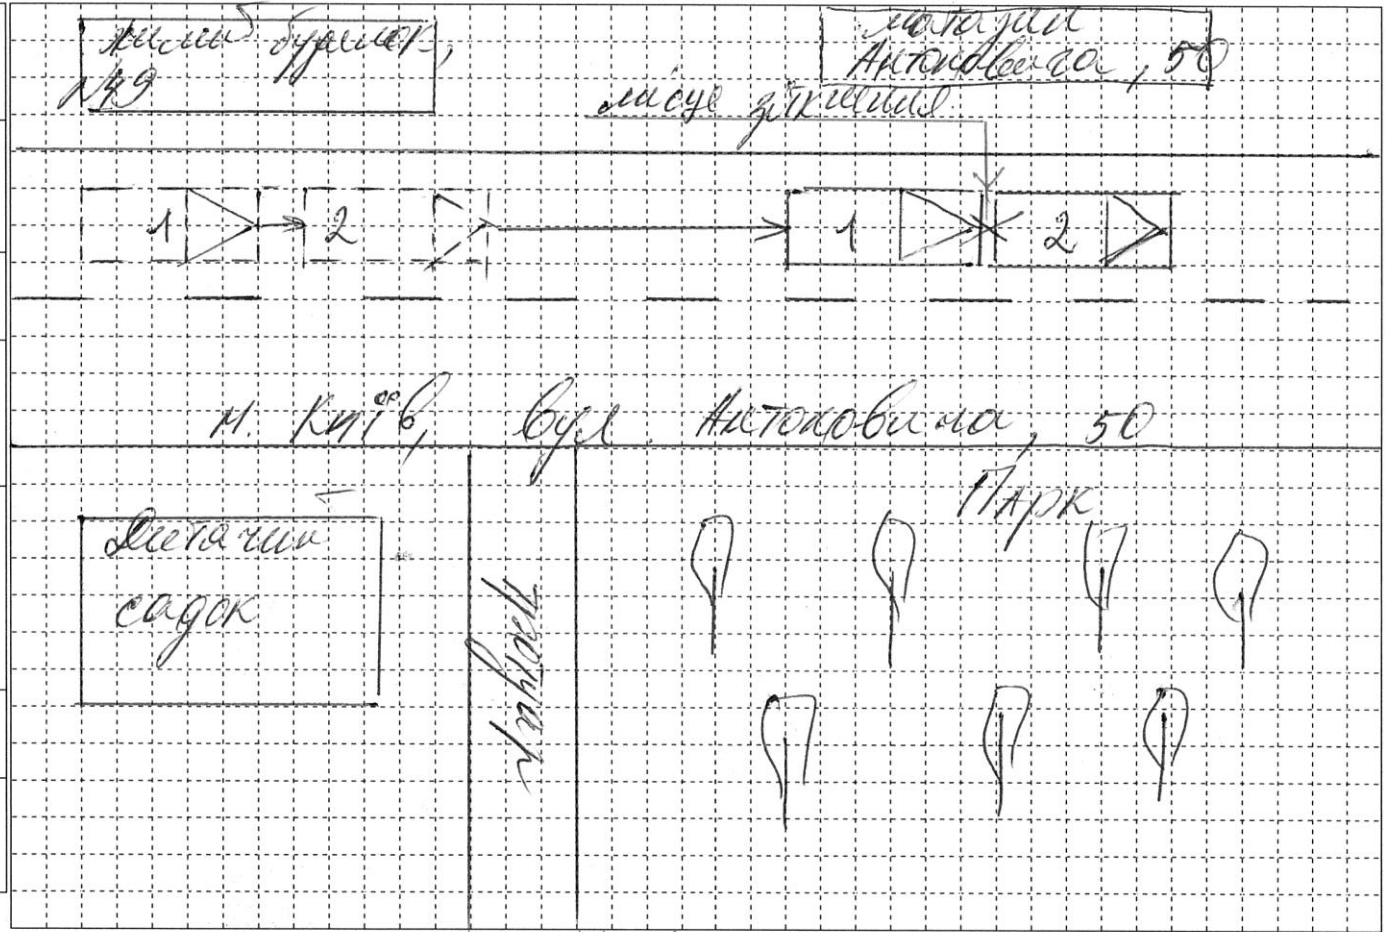 жилий будинок,
№49
магазин
Антоновича, 50
місце зіткнення
1
2
1
2
м. Київ, вул. Антоновича, 50
Парк
Дитячий
садок
Проїзд